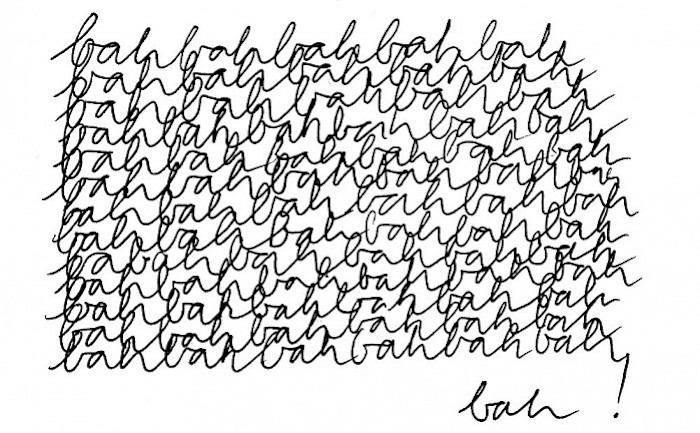 bahbahbahbahbah
bahbahbahbahbah
bahbahbahbahbah
bahbahbahbahbahbah
bahbahbahbahbahbah
bahbahbahbahbahba
bahbahbahbahbahbah
bahbahbahbahbahbah
bahbahbahbahbahbah
bahbahbahbahbahbah
bahbahbahbahbahbah
bahbahbahbahbahbah
bahbahbahbahbahbah
bah!